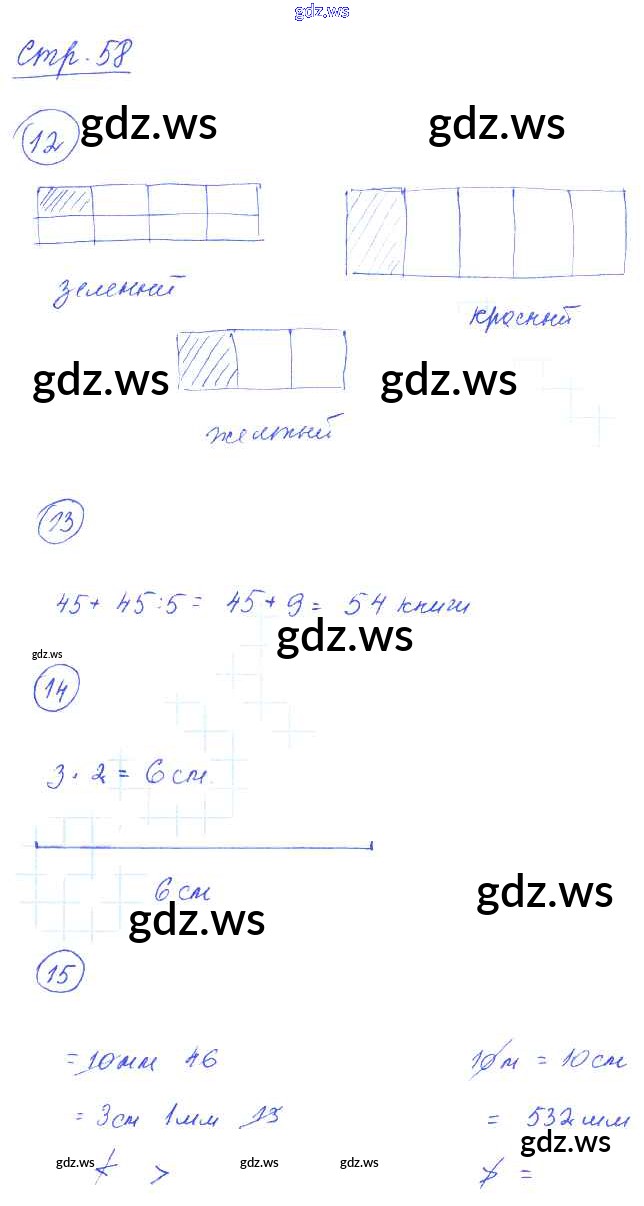 gdz.ws
Стр. 58
12 gdz.ws gdz.ws
зеленый
красный
gdz.ws gdz.ws
желтый
13
45 + 45 : 5 = 45 + 9 = 54 книги
gdz.ws
gdz.ws
14
3 · 2 = 6 см.
6 см
gdz.ws gdz.ws
15
= 10 мм 46 = 10 см
= 3 см 1 мм = 532 мм
gdz.ws
gdz.ws > gdz.ws gdz.ws =